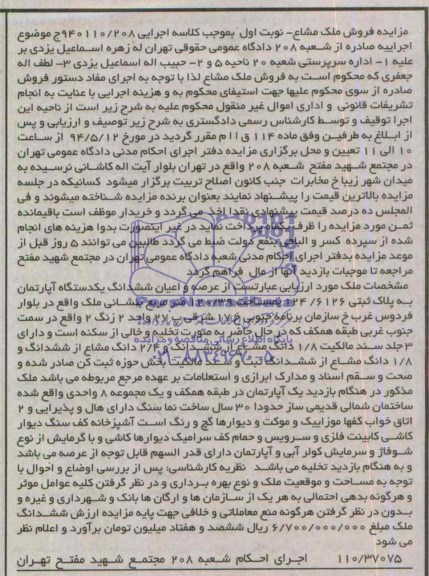 مزایده فروش ملک مشاع- نوبت اول بموجب کلاسه اجرایی ۹۴۰۱۱۰/۲۰۸ج موضوع
اجراییه صادره از شعبه ۲۰۸ دادگاه عمومی حقوقی تهران له زهره اسماعیل یزدی بر
علیه ۱- اداره سرپرستی شعبه ۲۰ ناحیه ۵ و ۲- حبیب اله اسماعیل یزدی ۳- لطف اله
جعفری که محکوم است به فروش ملک مشاع لذا با توجه به اجرای مفاد دستور فروش
صادره از سوی محکوم علیها جهت استیفای محکوم به و هزینه اجرایی با عنایت به انجام
تشریفات قانونی و اداری اموال غیر منقول محکوم علیه به شرح زیر است از ناحیه این
اجرا توقیف و توسط کارشناس رسمی دادگستری به شرح زیر توصیف و ارزیابی و پس
از ابلاغ به طرفین وفق ماده ۱۱۴ ق ا ا م مقرر گردید در مورخ ۹۴/۵/۱۲ از ساعت
۱۰ الی ۱۱ تعیین و محل برگزاری مزایده دفتر اجرای احکام مدنی دادگاه عمومی تهران
در مجتمع شهید مفتح شعبه ۲۰۸ واقع در تهران بلوار آیت اله کاشانی نرسیده به
میدان شهر زیبا خ مخابرات جنب کانون اصلاح تربیت برگزار میشود کسانیکه در جلسه
مزایده بالاترین قیمت را پیشنهاد نمایند بعنوان برنده مزایده شناخته میشوند و فی
المجلس ده درصد قیمت پیشنهادی نقدا اخذ می گردد و خریدار موظف است باقیمانده
ثمن مورد مزایده را ظرف یکماه پرداخت نماید در غیر اینصورت بدوا هزینه های انجام
شده از سپرده کسر و الباقی بنفع دولت ضبط می گردد طالبین می توانند ۵ روز قبل از
موعد مزایده بدفتر اجرای احکام مدنی شعبه دادگاه عمومی تهران در مجتمع شهید مفتح
مراجعه تا موجبات بازدید آنها از مال فراهم گردد
مشخصات ملک مورد ارزیابی عبارتست از عرصه و اعیان ششدانگ یکدستگاه آپارتمان
به پلاک ثبتی ۱۲۴/۶۱۲۶ بمساحت متر مربع بنشانی ملک واقع در بلوار
فردوس غرب خ سازمان برنامه جنوبی ۱۷ شرقی پ ۲۷ واحد ۲ زنگ ۲ واقع در سمت
جنوب غربی طبقه همکف که در حال حاضر به صورت تخلیه و خالی از سکنه است و دارای
۳ جلد سند مالکیت ۱/۸ دانگ مشاع از ششدانگ و ۲/۴ دانگ مشاع از ششدانگ و
۱/۸ دانگ مشاع از ششدانگ ثبت و سند مالکیت بخش حوزه ثبت کن صادره شده و
صحت و سقم اسناد و مدارک ابرازی و استعلامات بر عهده مرجع مربوطه می باشد ملک
مذکور در هنگام بازدید یک آپارتمان در طبقه همکف و یک مجموعه ۸ واحدی واقع شده
ساختمان شمالی قدیمی ساز حدودا ۳۰ سال ساخت نما سنگ دارای هال و پذیرایی و ۲
اتاق خواب کفها موزاییک و موکت و دیوارها گچ و رنگ است آشپزخانه کف سنگ دیوار
کاشی کابینت فلزی و سرویس و حمام کف سرامیک دیوارها کاشی و با گرمایش از نوع
شوفاژ و سرمایش کولر آبی و آپارتمان دارای قدر السهم قابل توجه از عرصه می باشد
و به هنگام بازدید تخلیه می باشد نظریه کارشناسی: پس از بررسی اوضاع و احوال با
توجه به مساحت و موقعیت ملک و نوع بهره برداری و در نظر گرفتن کلیه عوامل موثر
و هرگونه بدهی احتمالی به هر یک از سازمان ها و ارگان ها بانک و شهرداری و غیره و
بدون در نظر گرفتن هرگونه منع معاملاتی و خلافی جهت پایه مزایده ارزش ششدانگ
ملک مبلغ ۶/۷۰۰/۰۰۰/۰۰۰ ریال ششصد و هفتاد میلیون تومان برآورد و اعلام نظر
می شود
۱۱۰/۳۷۰۷۵ اجرای احکام شعبه ۲۰۸ مجتمع شهید مفتح تهران